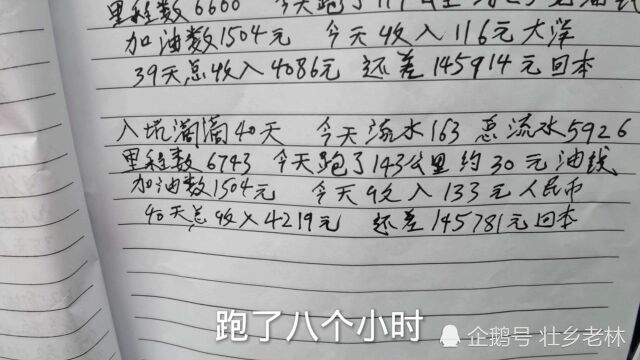 里程数6600 今天跑了117公里
加油数1504元 今天收入116元大洋
39天总收入4086元 还差145914元回本
入坑滴滴40天 今天流水163 总流水5926
里程数6743 今天跑了143公里约30元油钱
加油数1504元 今天收入133元人民币
40天总收入4219元 还差145781元回本
跑了八个小时
企鹅号 壮乡老林